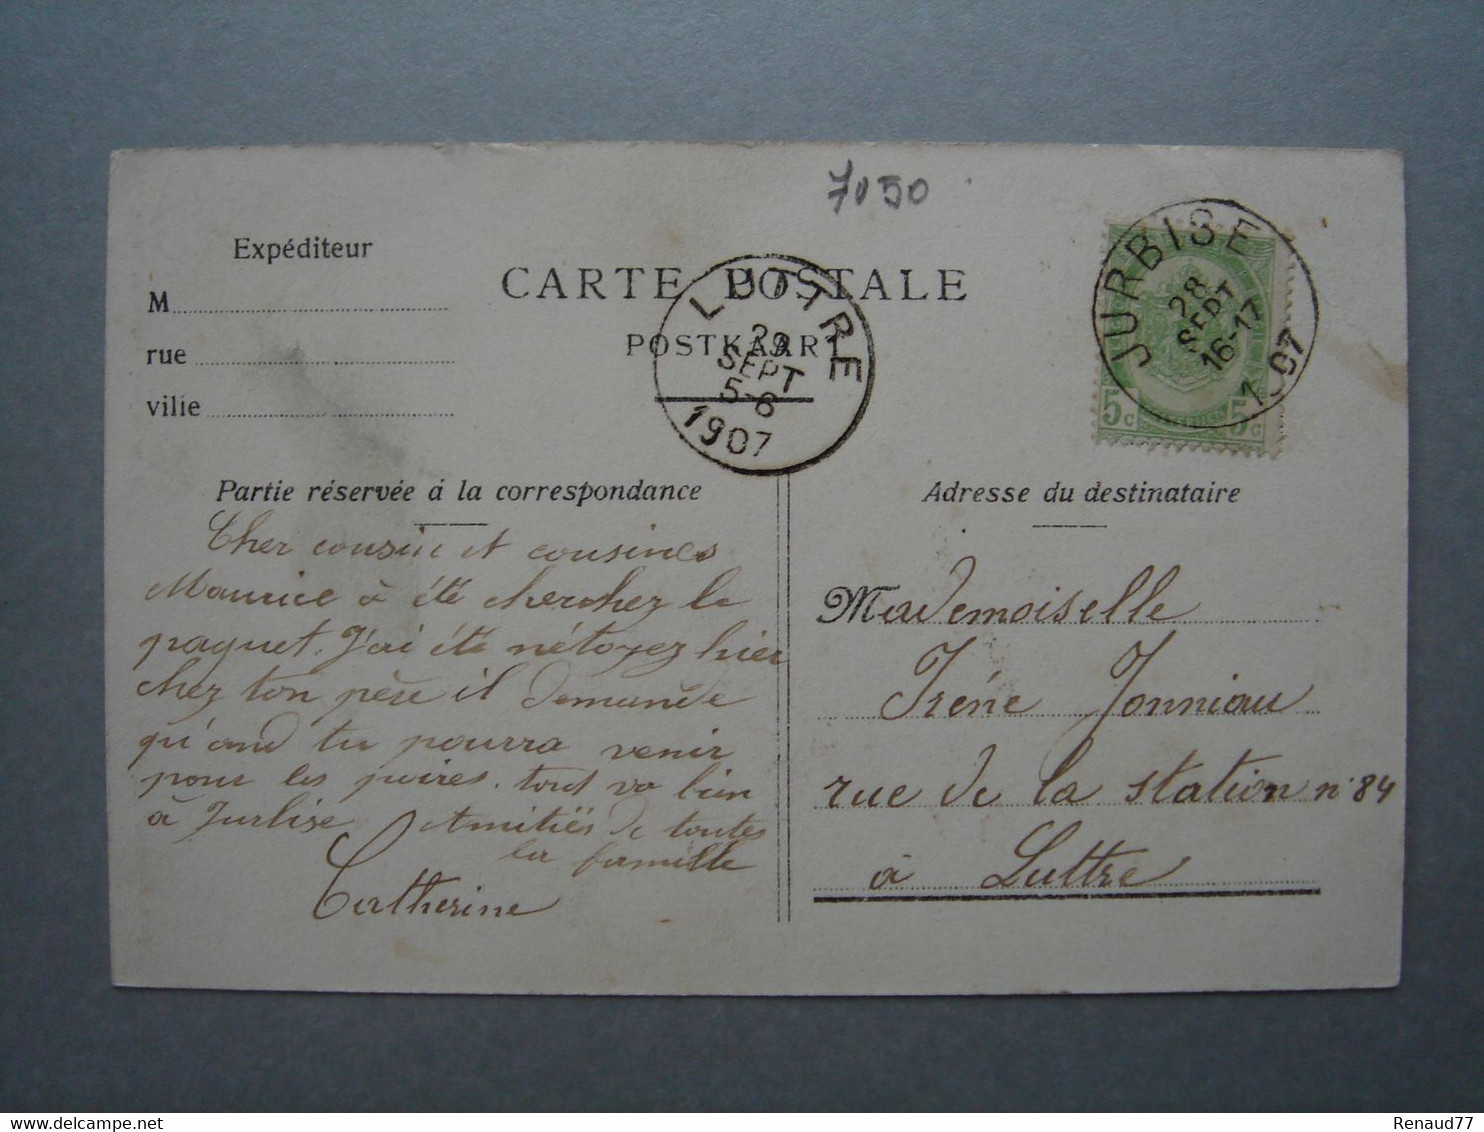 7050
Expéditeur
M
rue
ville
CARTE POSTALE
POSTKAART
LUTTRE
29
SEPT
5-6
1907
JURBISE
28
SEPT
16-17
1907
5c 5c
Partie réservée à la correspondance
Cher cousin et cousines
Maurice à été cherchez le
paquet. J'ai été nétoyez hier
chez ton père il demande
qu'and tu pourra venir
pour les poires. tout va bien
à Jurbise Amitiés de toutes
la famille
Catherine
Adresse du destinataire
Mademoiselle
Iréne Jonniau
rue de la station n° 84
à Luttre
Renaud77